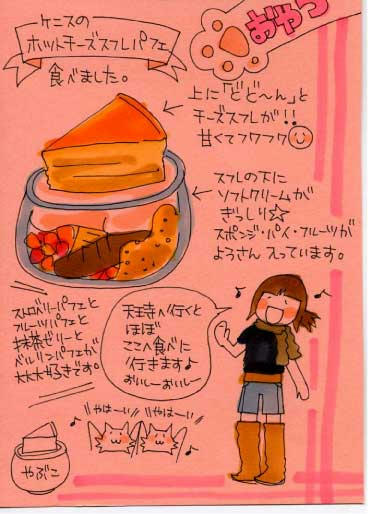 おやつ
ケニスの
ホットチーズスフレパフェ
食べました。
上に「どど〜ん」と
チーズスフレが!!
甘くてフワ〜フワ
スフレの下に
ソフトクリームが
ぎっしり☆
スポンジ・パイ・フルーツが
ようさん入っています。
ストロベリーパフェと
フルーツパフェと
抹茶ゼリーと
ベルリンパフェが
大大大好きです。
天王寺へ行くと
ほぼ
ここへ食べに
行きます♪
おいし〜おいし〜
やは〜い
やは〜い
やぶこ